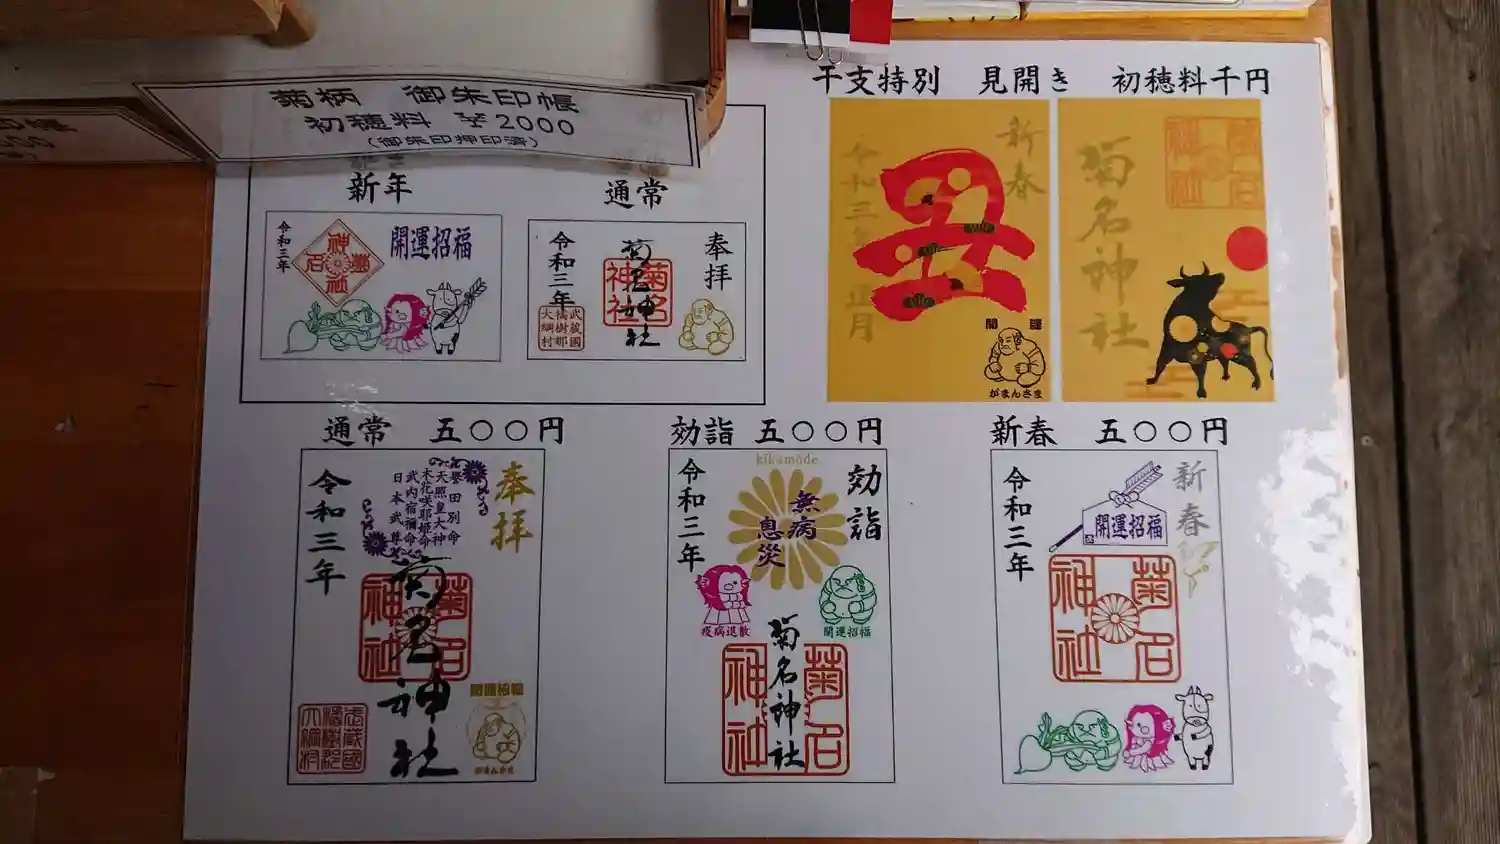 菊柄 御朱印帳
初穂料 ¥2000
(御朱印押印済)
干支特別 見開き 初穂料千円
新年
令和三年
菊名神社
開運招福
通常
奉拝
菊名神社
令和三年
武蔵國
橘樹郡
大綱村
新春
丑
令和三年正月
開運
がまんさま
菊名神社
菊名神社
通常 五〇〇円
奉拝
誉田別命
天照皇大神
木花咲耶姫命
武内宿禰命
日本武尊
令和三年
菊名神社
菊名神社
武蔵國
橘樹郡
大綱村
開運招福
がまんさま
効詣 五〇〇円
kikumode
効詣
無病
息災
令和三年
疫病退散
開運招福
菊名神社
菊名神社
新春 五〇〇円
新春
開運招福
令和三年
菊名神社